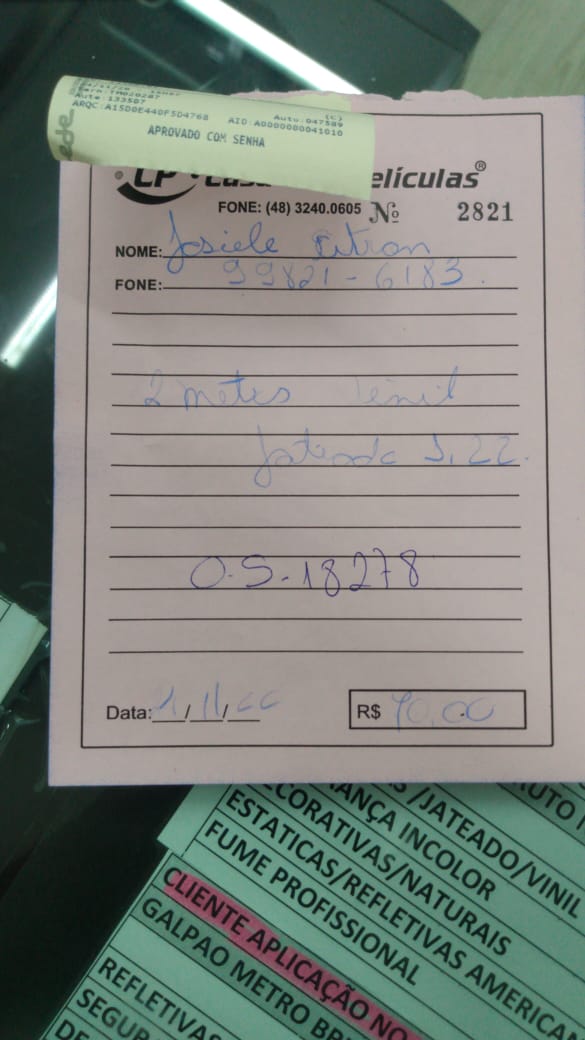 Auto:047589
Aute:133507
ARQC:A15D0E440F5D4768 AID:A0000000041010
APROVADO COM SENHA
CP Casa elículas®
FONE: (48) 3240.0605 Nº 2821
NOME: Josiele
FONE: 99821-6183.
2 metros
Jateado 1,22.
O.S. 18278
Data: 1/11/
R$ 70,00
/JATEADO/VINIL
ANÇA INCOLOR
CORATIVAS/NATURAIS
ESTATICAS/REFLETIVAS AMERICAN
FUME PROFISSIONAL
CLIENTE APLICAÇÃO NO
GALPAO METRO
REFLETIVAS
SEGUR
DE